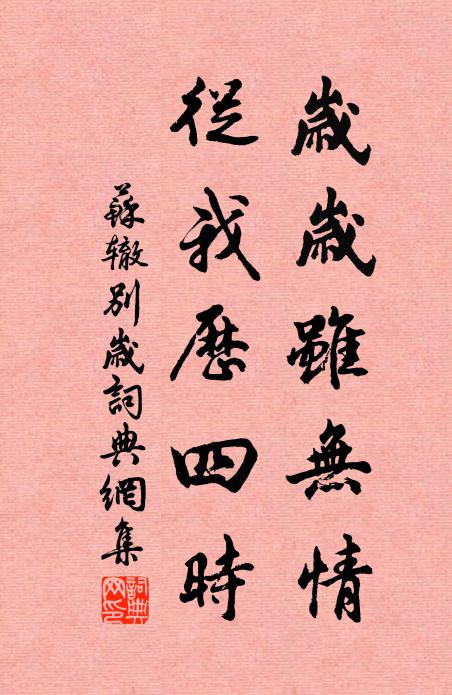 歲歲雖無情
從我歷四時
蘇轍別歲詞典網集
詞典網印